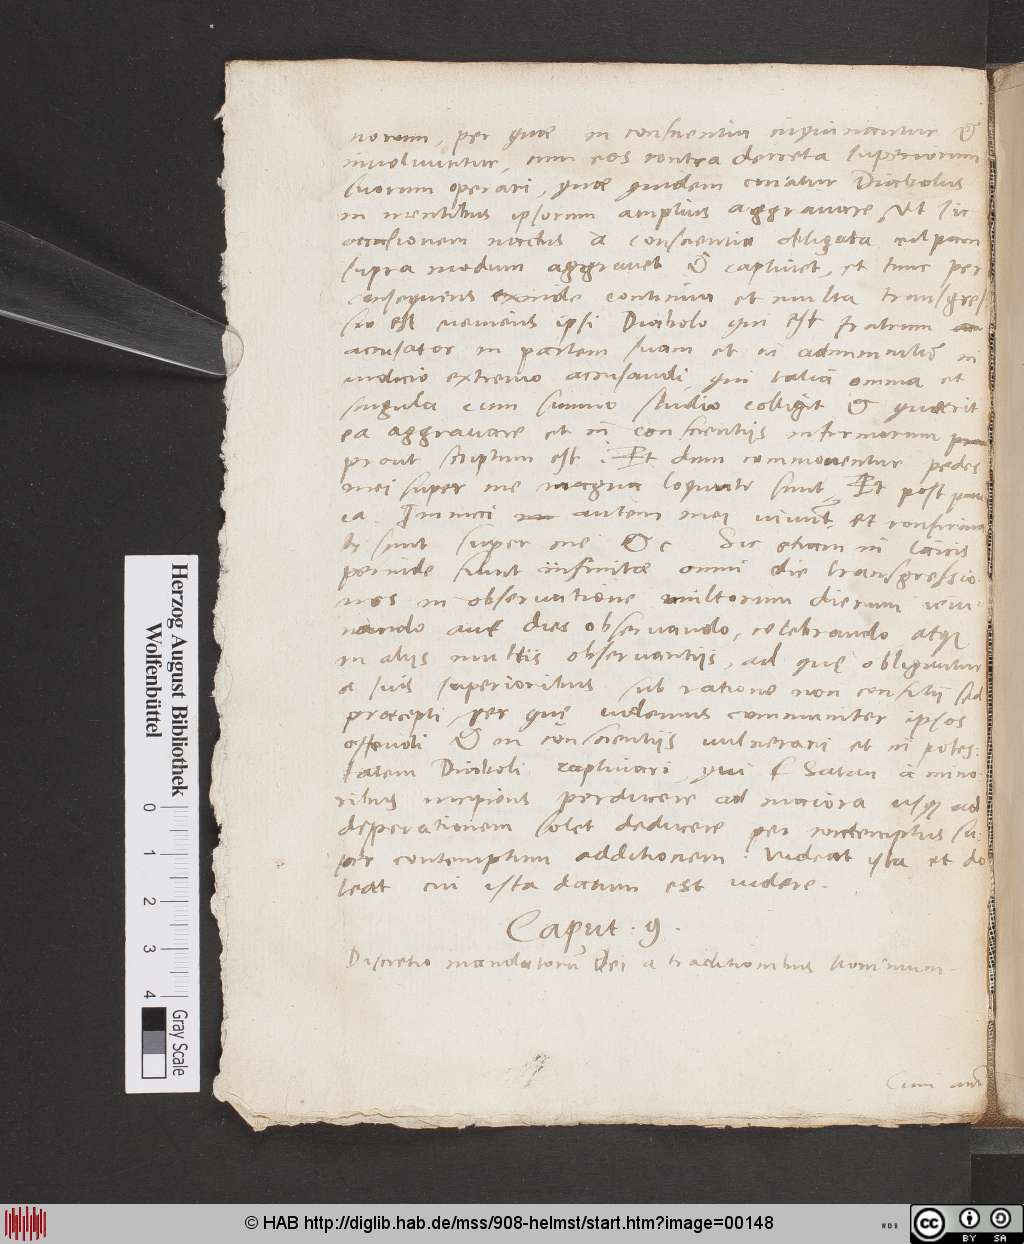 norum, per quae in conscientia inquinantur &
involvuntur, cum eos contra decreta superiorum
suorum operari, quae quidem conatur Diabolus
in mentibus ipsorum amplius aggravare, Ut sic
occasionem nactus à conscientia obligata culpam
supra modum aggravet & captivet, et tunc per
consequens exinde continua et multa transgres
sio est veniens ipsi Diabolo qui est fratrum
accusator in partem suam et in in
iudicio extremo accusandi, qui talia omnia et
singula cum summo studio colligit & quaerit
ea aggravare et in conscientijs infirmorum
prout scriptum est. Et dum commoventur pedes
mei super me magna loquuti sunt, Et post pau
ca. Inimici autem mei vivunt et confirma
ti sunt super me &c Sic etiam in laicis
perinde sunt infinitae omni die transgressio
nes in observatione multorum dierum ieiu-
nando aut dies observando, celebrando atque
in alijs multis observantijs, ad quę obligantur
a suis superioribus sub ratione non consilij sed
praecepti, per quę videmus communiter ipsos
offendi & in conscientijs vulnerari et in potes:
tatem Diaboli captivari, qui Satan à mino-
ribus incipiens perducere ad maiora usque ad
desperationem solet deducere per contemptus su:
per contemptum additionem. Videat ista et do
leat cui ista datum est videre.
Caput. 9.
Discretio mandatorum Dei a traditionibus hominum.
Cum aut
Herzog August Bibliothek
Wolfenbüttel
0 1 2 3 4
Gray Scale
© HAB http://diglib.hab.de/mss/908-helmst/start.htm?image=00148
WDB
cc BY SA